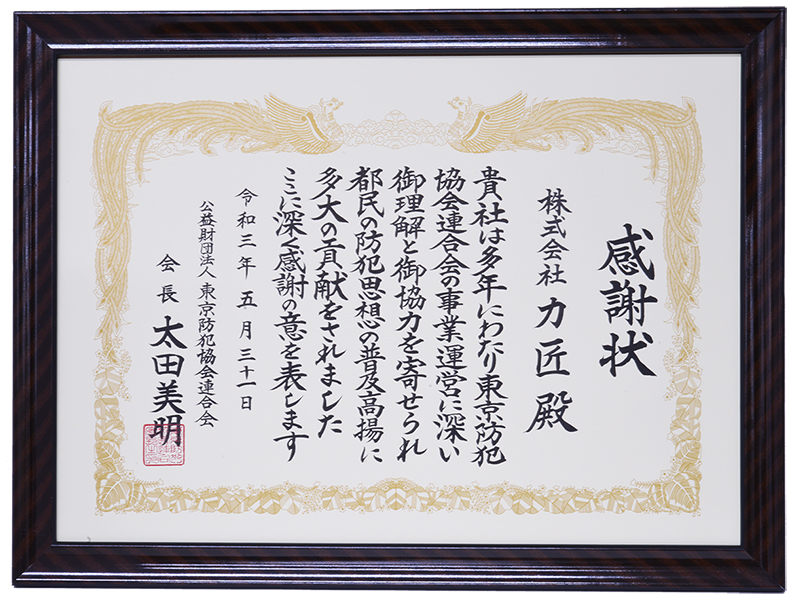 感謝状
株式会社 力匠 殿
貴社は多年にわたり東京防犯
協会連合会の事業運営に深い
御理解と御協力を寄せられ
都民の防犯思想の普及高揚に
多大の貢献をされました
ここに深く感謝の意を表します
令和三年五月三十一日
公益財団法人 東京防犯協会連合会
会長 太田美明